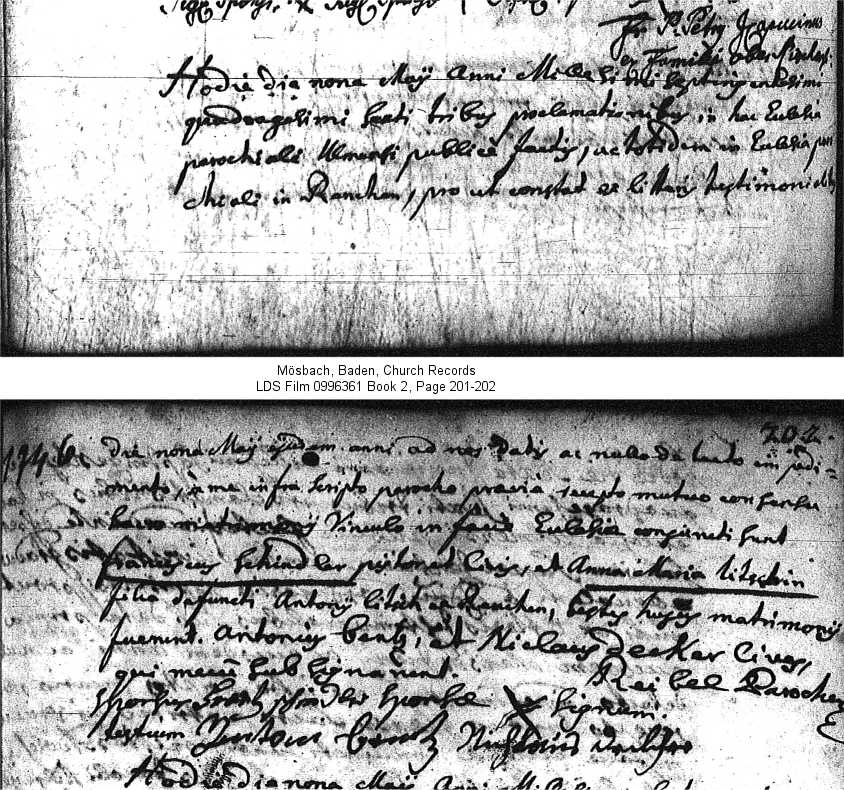 Fr. P. Petrg
ex Familia
Hodie die nona Maÿ Anni Millesimi septingentesimi
quadragesimi sexti tribus proclamationibus, in hac Ecclesia
parochiali Ulmensi publicè factis, ac totidem in Ecclesia paro
chiali in Renchen, prout constat ex litteris testimonialibus
Mösbach, Baden, Church Records
LDS Film 0996361 Book 2, Page 201-202
202.
1746. die nona Maÿ ejusdem anni ad nos datis ac nullo detecto impedi-
mento, à me infra scripto parocho praevià mutuo consensu
sacro matrimonÿ Vinculo in facie Ecclesiae conjuncti sunt
Franciscus Schindler et Anna Maria Litschin
filia defuncti Antonÿ Litsch ex Renchen, testes hujus matrimonÿ
fuerunt. Antonius bentz, et Niclaus Decker Cives,
qui mecum subsignarunt.
Reibel Parochus
sponsus frantz schindler sponsae X signum.
testium Antoni bentz
Hodie die nona Maÿ Anni